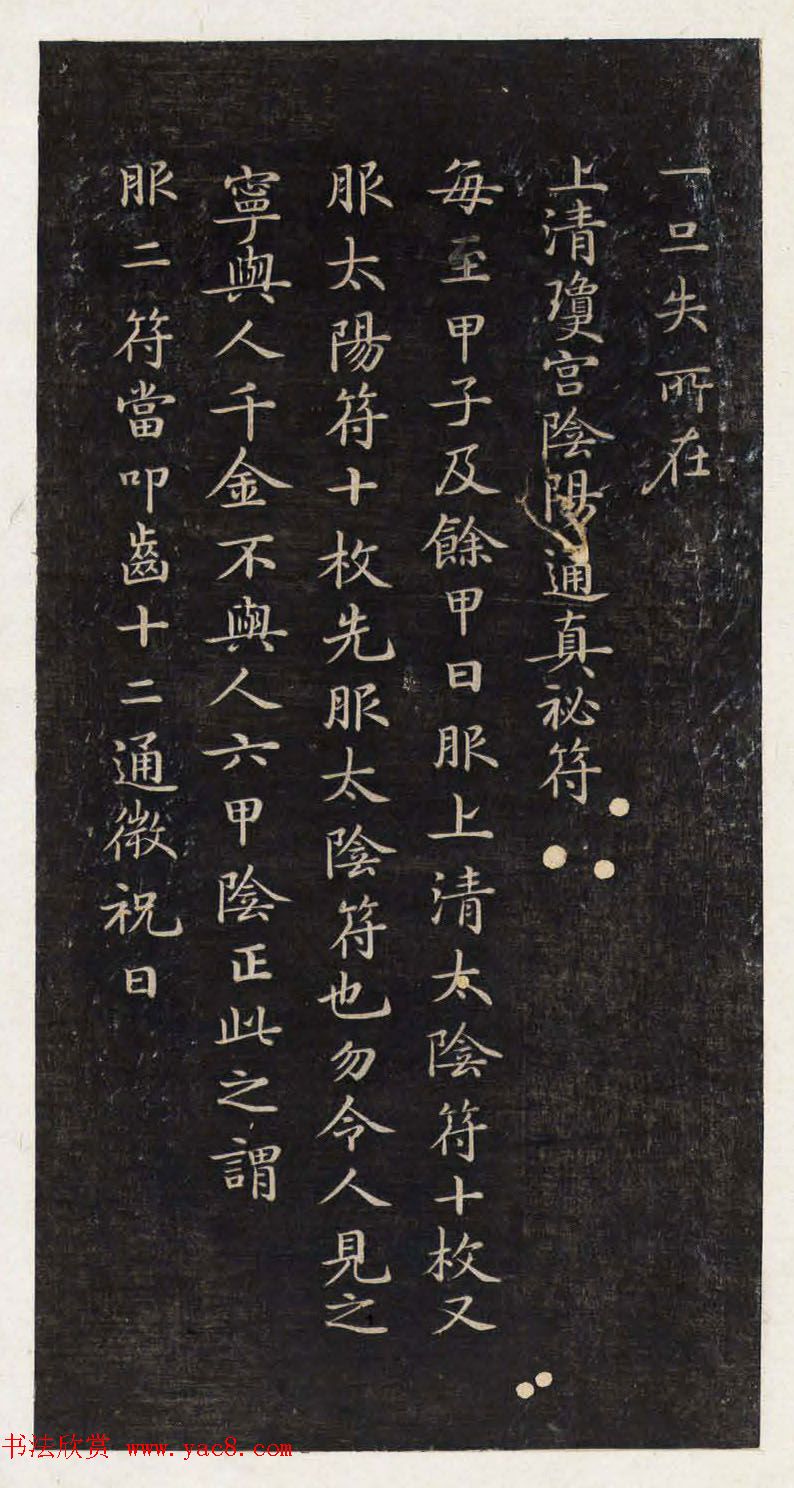 一旦失所在
上清瓊宮陰陽通真祕符
每至甲子及餘甲日服上清太陰符十枚又
服太陽符十枚先服太陰符也勿令人見之
寧與人千金不與人六甲陰正此之謂
服二符當叩齒十二通微祝曰
书法欣赏 www.yac8.com